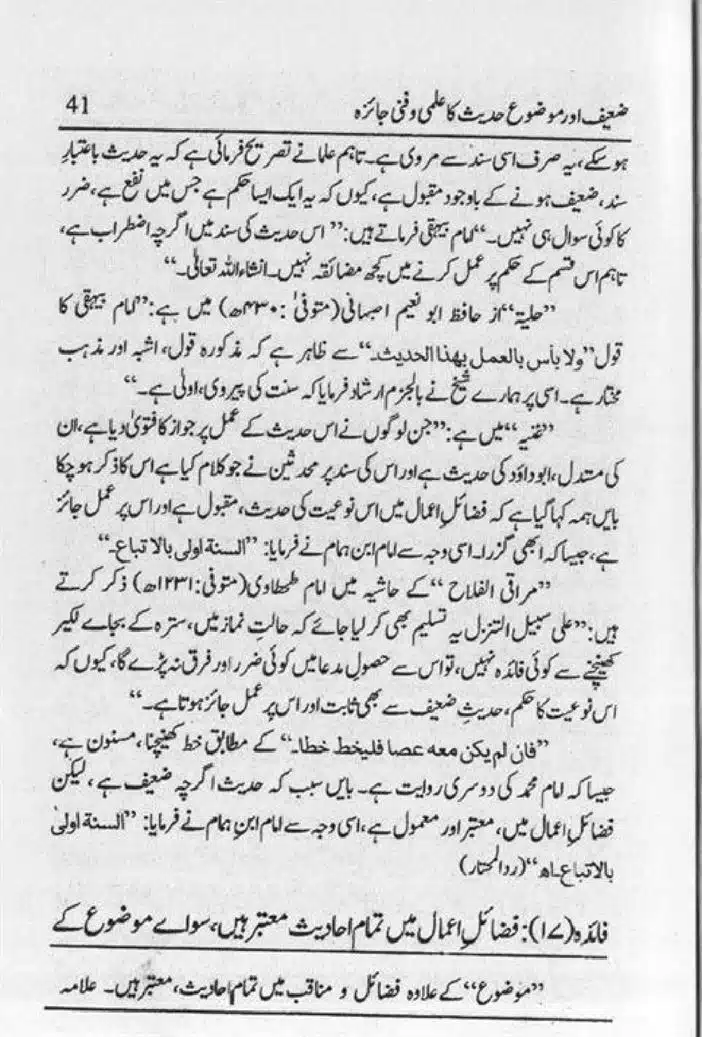 ضعیف اور موضوع حدیث کا علمی و فنی جائزہ 41
ہو سکے، یہ صرف اسی سند سے مروی ہے۔ تاہم علما نے تصریح فرمائی ہے کہ یہ حدیث باعتبارِ
سند، ضعیف ہونے کے باوجود مقبول ہے، کیوں کہ یہ ایک ایسا حکم ہے جس میں نفع ہے، ضرر
کا کوئی سوال ہی نہیں۔“ امام بیہقی فرماتے ہیں: ”اس حدیث کی سند میں اگرچہ اضطراب ہے،
تاہم اس قسم کے حکم پر عمل کرنے میں کچھ مضائقہ نہیں۔ انشاء اللہ تعالٰی۔“
”حلیۃ“ از حافظ ابو نعیم اصبہانی (متوفیٰ: ۴۳۰ھ) میں ہے: ”امام بیہقی کا
قول ”ولا بأس بالعمل بهذا الحديث۔“ سے ظاہر ہے کہ مذکورہ قول، اشبہ اور مذہب
مختار ہے۔ اسی پر ہمارے شیخ نے بالجزم ارشاد فرمایا کہ سنت کی پیروی، اولیٰ ہے۔“
”غنیہ“ میں ہے: ”جن لوگوں نے اس حدیث کے عمل پر جواز کا فتویٰ دیا ہے، ان
کی مستدل، ابو داؤد کی حدیث ہے اور اس کی سند پر محدثین نے جو کلام کیا ہے اس کا ذکر ہو چکا
بایں ہمہ کہا گیا ہے کہ فضائلِ اعمال میں اس نوعیت کی حدیث، مقبول ہے اور اس پر عمل جائز
ہے، جیسا کہ ابھی گزرا۔ اسی وجہ سے امام ابن ہمام نے فرمایا: ”السنة اولى بالاتباع۔“
”مراقی الفلاح“ کے حاشیہ میں امام طحطاوی (متوفی: ۱۲۳۱ھ) ذکر کرتے
ہیں: ”علی سبیل التنزل یہ تسلیم بھی کر لیا جائے کہ حالتِ نماز میں، سترہ کے بجاے لکیر
کھینچنے سے کوئی فائدہ نہیں، تو اس سے حصولِ مدعا میں کوئی ضرر اور فرق نہ پڑے گا، کیوں کہ
اس نوعیت کا حکم، حدیثِ ضعیف سے بھی ثابت اور اس پر عمل جائز ہوتا ہے۔“
”فان لم يكن معه عصا فليخط خطا۔“ کے مطابق خط کھینچنا، مسنون ہے،
جیسا کہ امام محمد کی دوسری روایت ہے۔ بایں سبب کہ حدیث اگرچہ ضعیف ہے، لیکن
فضائلِ اعمال میں، معتبر اور معمول ہے، اسی وجہ سے امام ابنِ ہمام نے فرمایا: ”السنة اولىٰ
بالاتباع۔اھ“ (ردالمحتار)
فائدہ (۱۷): فضائلِ اعمال میں تمام احادیث معتبر ہیں، سواے موضوع کے
”موضوع“ کے علاوہ فضائل و مناقب میں تمام احادیث، معتبر ہیں۔ علامہ